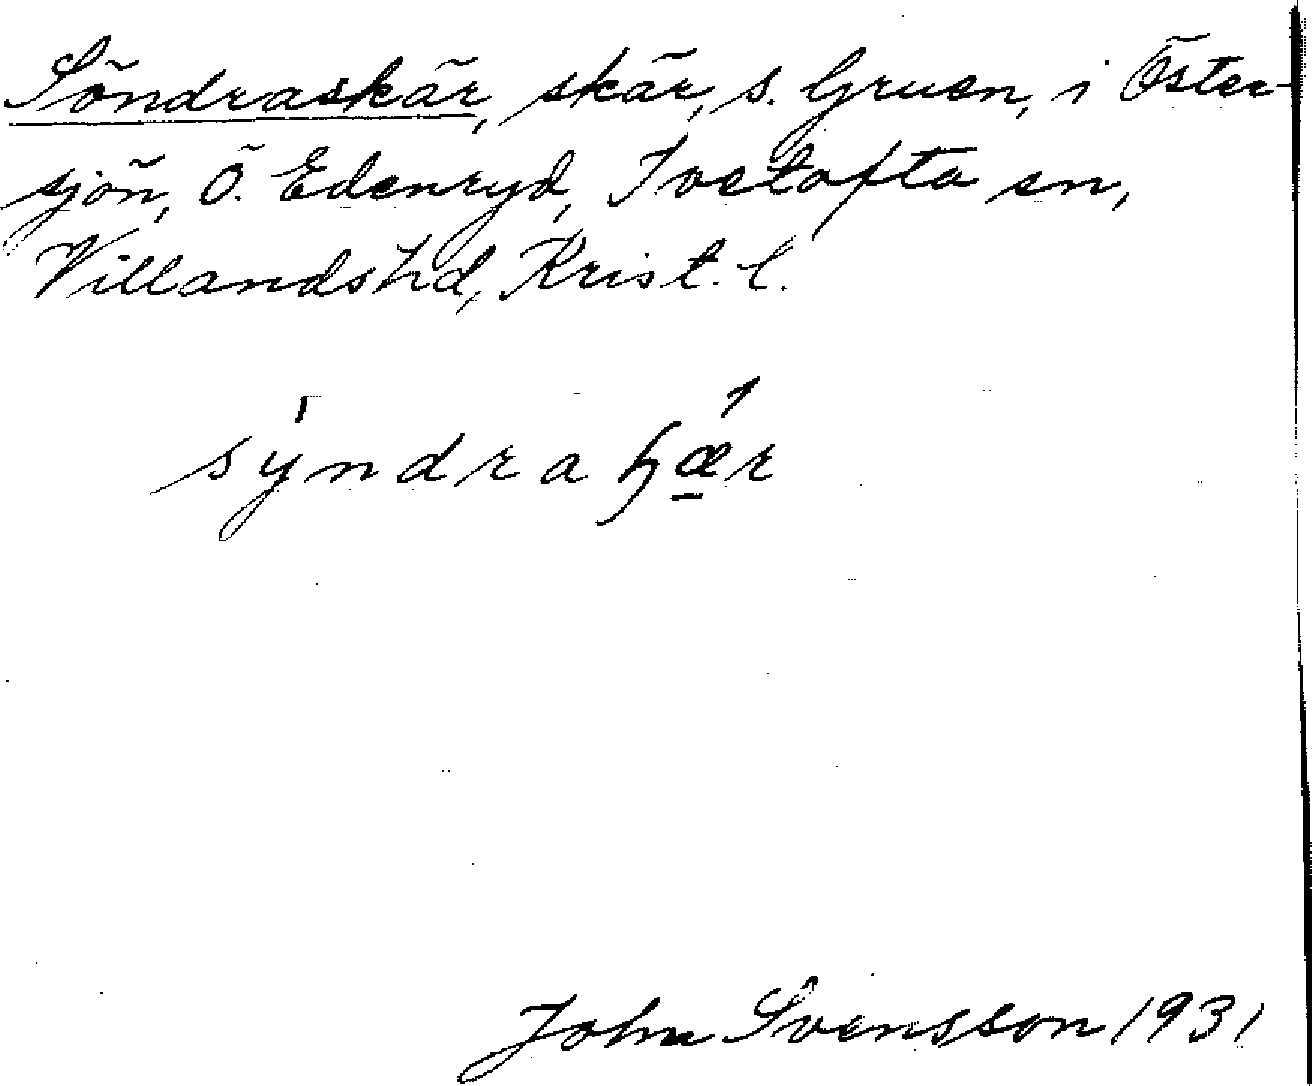 Söndraskär, skär, s. Gruen, i Öster-
sjön, Ö. Edenryd, Ivetofta sn,
Villandshd, Krist. l.
sýndraɧǽr
John Svensson 1931